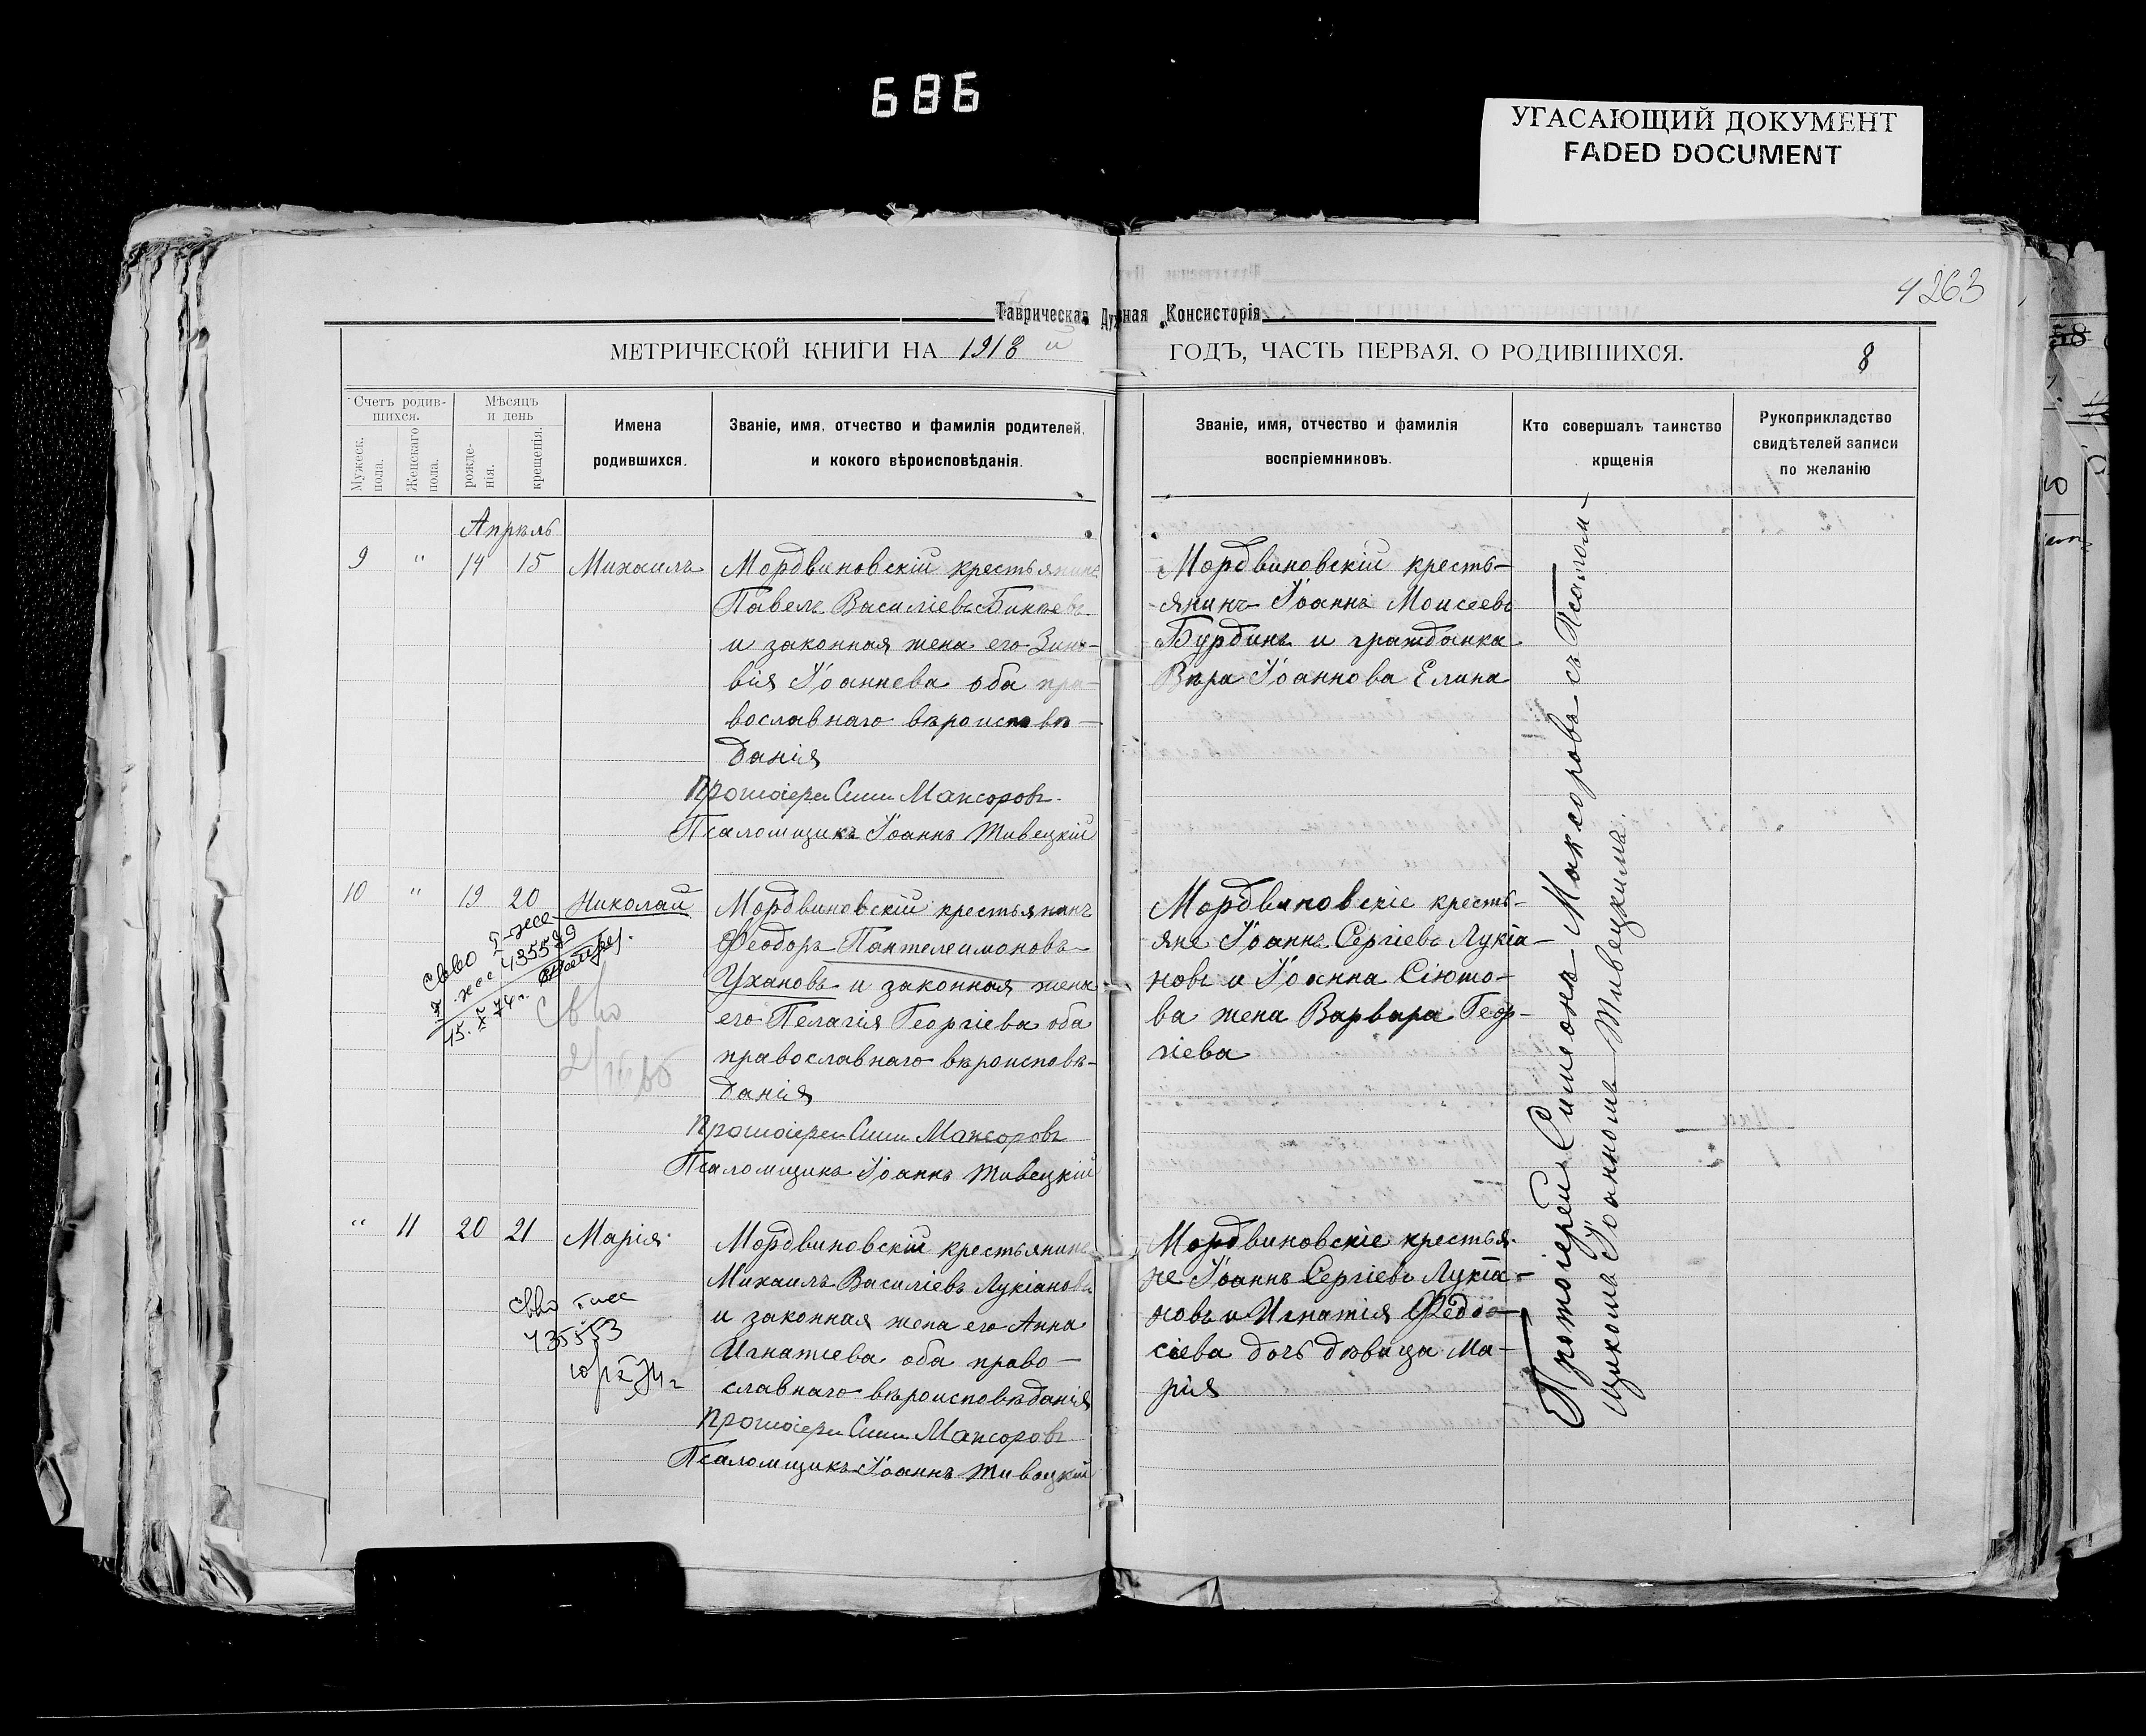 686
УГАСАЮЩИЙ ДОКУМЕНТ
FADED DOCUMENT
263
Таврическая Духная Консисторія
МЕТРИЧЕСКОЙ КНИГИ НА 1918 й ГОДЪ, ЧАСТЬ ПЕРВАЯ. О РОДИВШИХСЯ. 8
Счетъ родив-
шихся.
Мужеск.
пола.
Женскаго
пола.
Мѣсяцъ
и день
рожде-
нія.
крещенія.
Имена
родившихся.
Званіе, имя, отчество и фамилія родителей,
и кокого вѣроисповѣданія.
Званіе, имя, отчество и фамилія
воспріемниковъ.
Кто совершалъ таинство
крщенія
Рукоприкладство
свидѣтелей записи
по желанію
Апрѣль
9 " 14 15 Михаилъ
Мордвиновскій крестьянинъ
Павелъ Василіевъ
и законная жена его Зино-
вія Іоаннева оба пра-
вославнаго вѣроисповѣ-
данія
Протоіерей Сим Максоровъ.
Псаломщикъ Іоаннъ Живецкій
Мордвиновскій кресть-
янинъ Іоаннъ Моисеевъ
Бурдинъ и гражданка
Вѣра Іоаннова Елина
10 " 19 20 Николай
Мордвиновскій крестьянинъ
Феодоръ Пантелеимоновъ
Ухановъ и законная жена
его Пелагія Георгіева оба
православнаго вѣроисповѣ-
данія
Протоіерей Сим Максоровъ
Псаломщикъ Іоаннъ Живецкій
Мордвиновскіе кресть-
яне Іоаннъ Сергіевъ Лукіа-
новъ и Іоанна Сіюто-
ва жена Варвара Геор-
гіева
св-во
435579
15.X 74г.
св-во
" 11 20 21 Марія
Мордвиновскій крестьянинъ
Михаилъ Василіевъ Лукіановъ
и законная жена его Анна
Игнатіева оба право-
славнаго вѣроисповѣданія
Протоіерей Сим Максоровъ
Псаломщикъ Іоаннъ Живецкій
Мордвиновскіе крестья-
не Іоаннъ Сергіевъ Лукіа-
новъ и Игнатія Феодо-
сіева дочь дѣвица Ма-
рія
св-во
435553
10/X 74г
Протоіерей Симеонъ Максоровъ съ Псалом-
щикомъ Іоанномъ Живецкимъ.